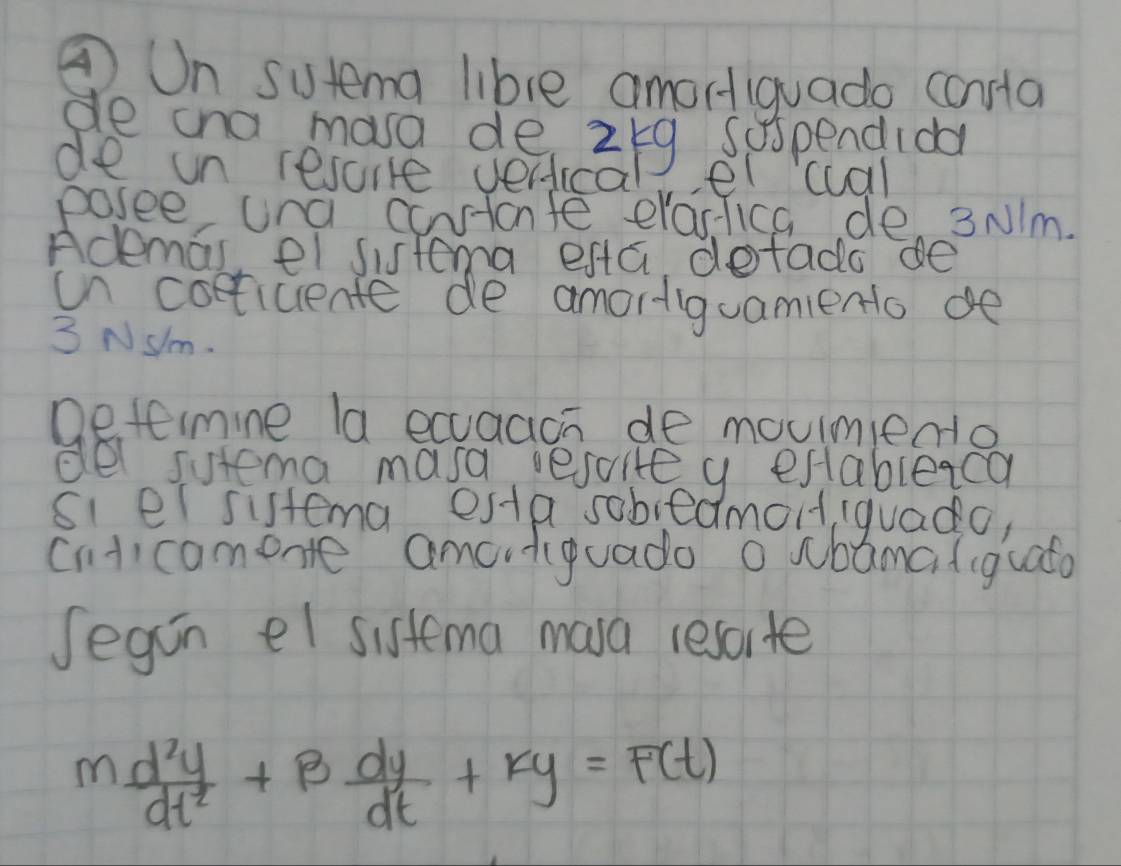 ④ Un sistema libre amortiguado consta
de una masa de 2kg suspendida
de un resorte vertical el cual
posee una constante elástica de 3N/m.
Además, el sistema está dotado de
un coeficiente de amortiguamiento de
3 Ns/m.
Determine la ecuación de movimiento
del sistema masa resorte y establezca
si el sistema esta sobreamortiguado,
criticamente amortiguado o subamortiguado
Según el sistema masa resorte
m d²y/dt² + β dy/dt + ky = F(t)